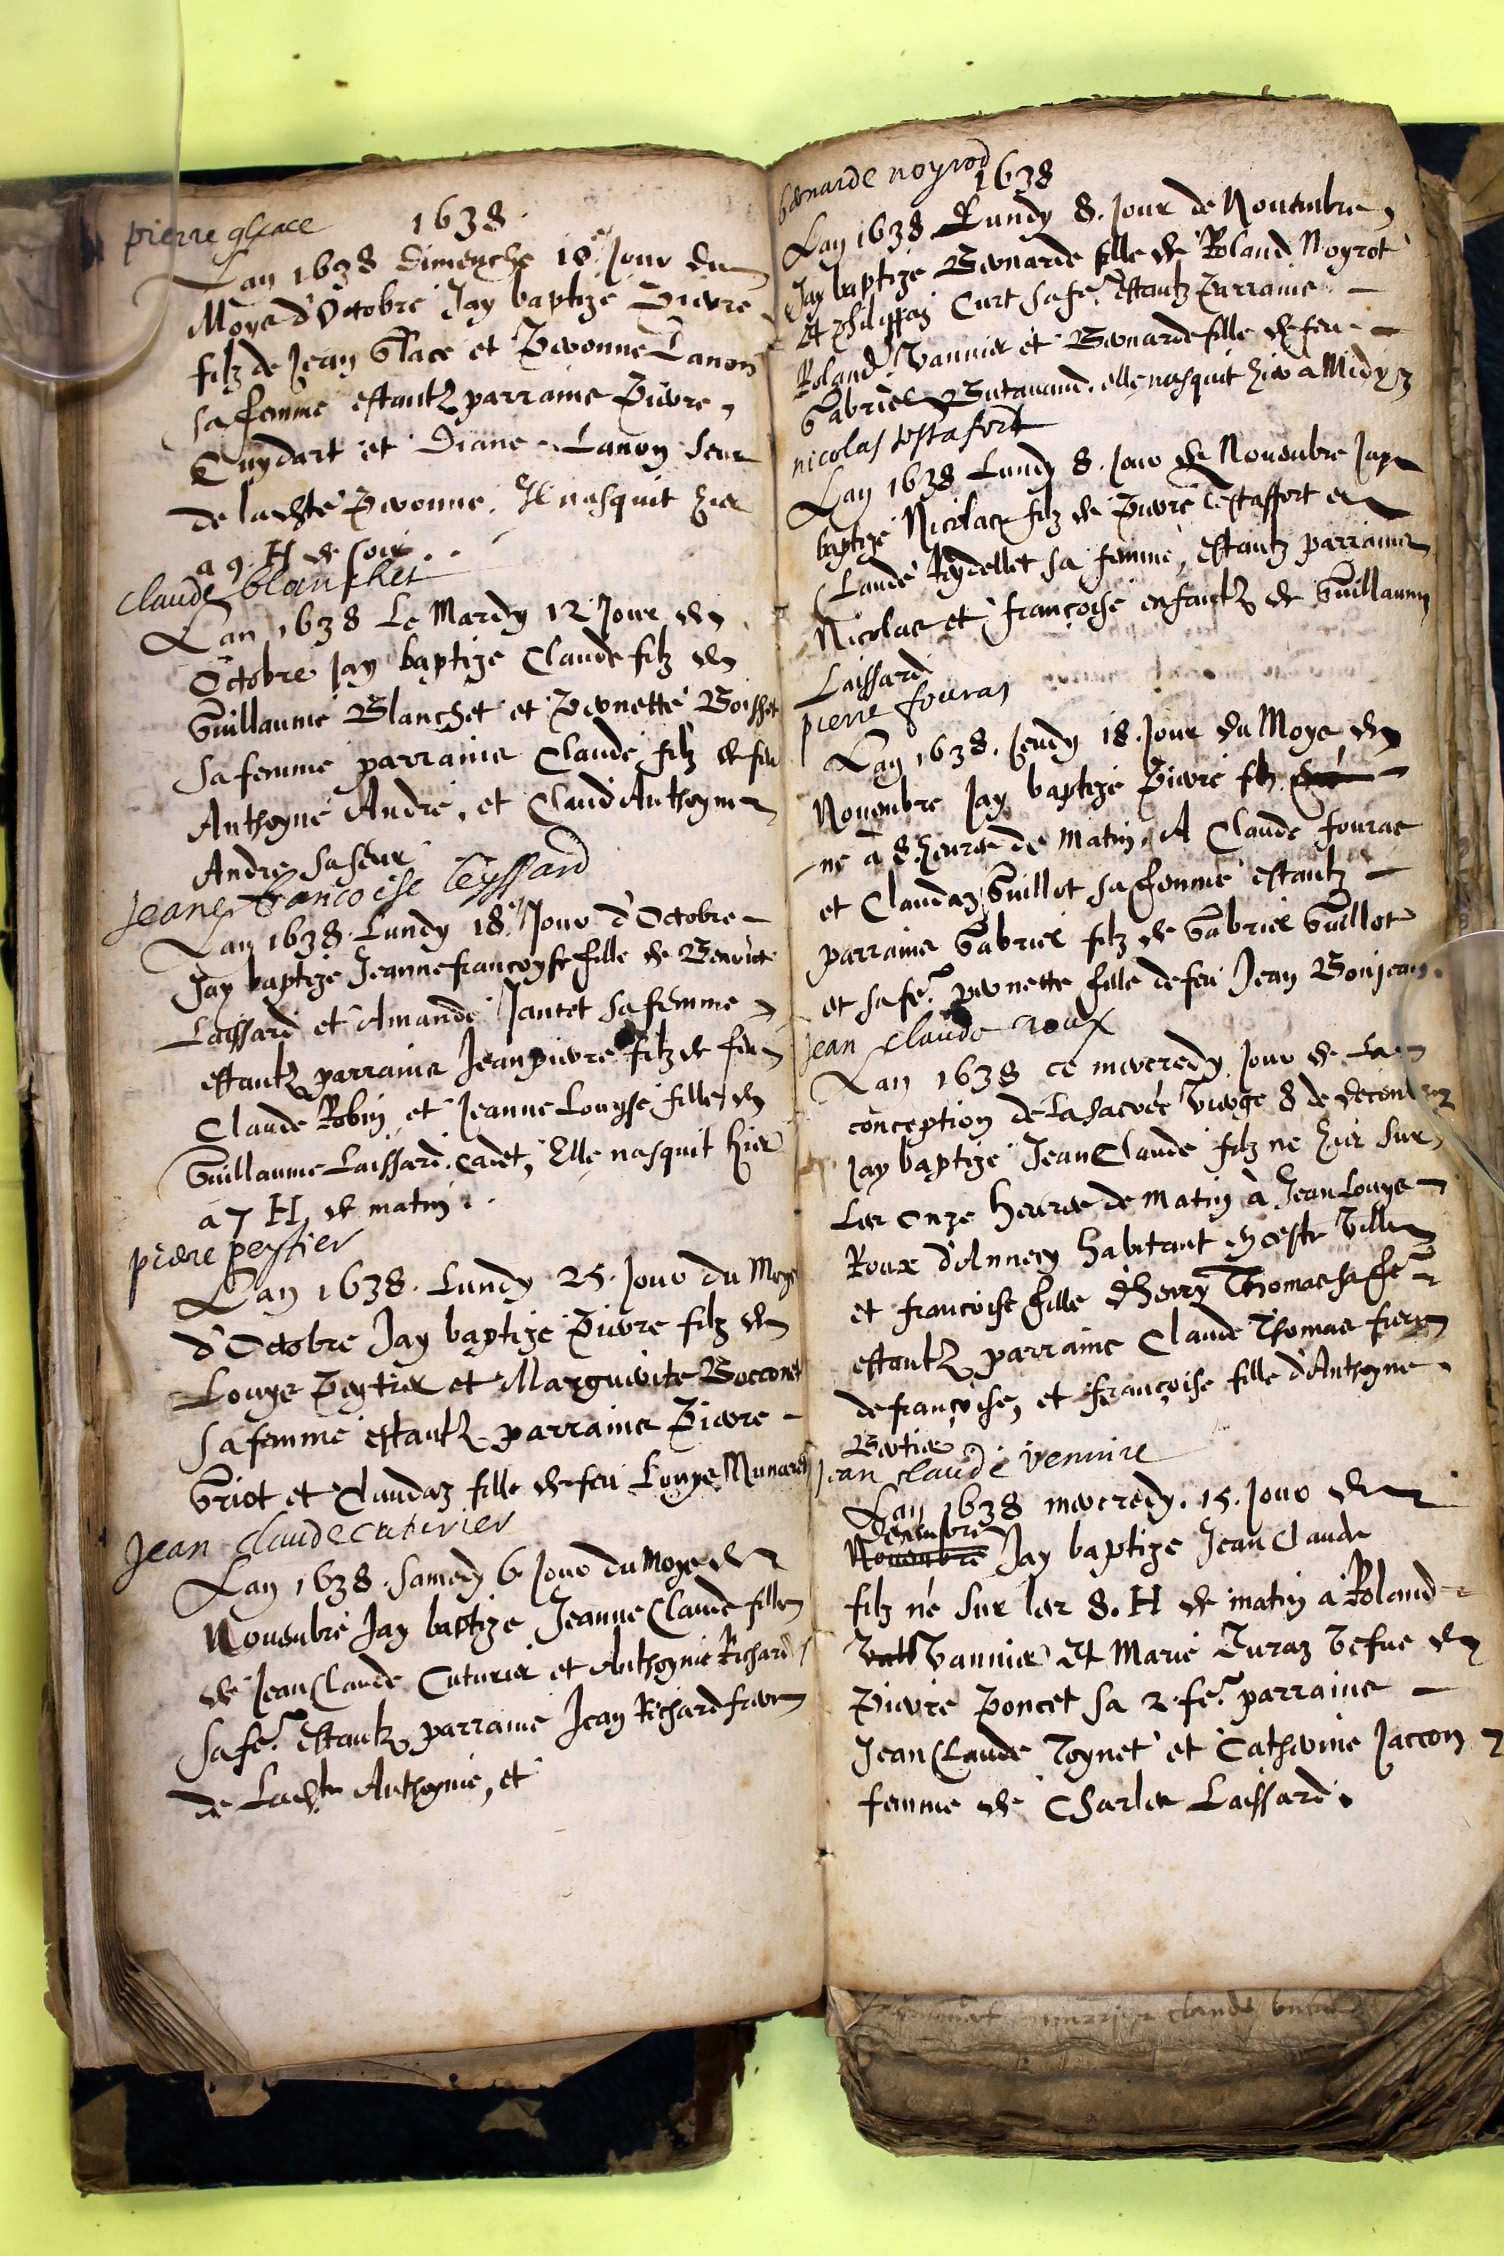 pierre glace
1638.
Lan 1638 dimenche 10e Jour du
Moys d'Octobre Jay baptizé Pierre
filz de Jean Glace et Pivonne Lanon
sa femme estantz parrains Pierre
Cuydart et Diane Lanon seur
de ladte Pivonne. Il nasquit hier
a 9. H de soir.
claude blanchet
Lan 1638 Le Mardy 12 Jour de
Octobre Jay baptizé Claude filz de
Guillaume Blanchet et Pernette Boisset
sa femme parrains Claude filz de feu
Anthoyne André, et Claud'Anthoyne
André sa seur
jeane francoise leyssard
Lan 1638. Lundy 18e Jour d'Octobre
Jay baptizé Jeanne francoyse fille de Benoict
Laissard et Amande Jantet sa femme
estantz parrains Jean pierre filz de feu
Claude Robin et Jeanne Louyse fille de
Guillaume Laissard. cadet, Elle nasquit hier
a 7 H, de matin.
pierre peytier
Lan 1638. Lundy 25. Jour du Moys
d'Octobre Jay baptizé Pierre filz de
Louys Peytier et Marguerite Bocconet
sa femme estantz parrains Pierre
Griot et Claudaz fille de feu Louys Munard
Jean claude cuturier
Lan 1638. Samedy 6 Jour du Moys de
Nouembre Jay baptizé Jeanne Claude fille
de Jean Claude Cuturier et Anthoynie Richard
sa fe. estantz parrains Jean Richard frere
de Ladte Anthoynie, et
bernarde noyrod
1638
Lan 1638 Lundy 8. Jour de Nouembre,
Jay baptizé Bernarde fille de Roland Noyrot
et Philippaz Curt sa fe. estantz Parrains
Roland Vannier et Bernarde fille de feu
Gabriel Butauand. elle nasquit hier a Midy
nicolas testafort
Lan 1638 Lundy 8. Jour de Nouembre Jay
baptizé Nicolas filz de Pierre Testaffort et
Claude Reydellet sa femme, estantz parrains
Nicolas et françoise enfantz de Guillaume
Laissard
pierre fouras
Lan 1638. Jeudy 18. Jour du Moys de
Nouembre Jay baptizé Pierre filz
né à 8. heures de matin, A Claude fouras
et Claudaz Guillot sa femme estantz
parrains Gabriel filz de Gabriel Guillot
et sa fe. pernette fille de feu Jean Bonjean.
jean claude roux
Lan 1638 ce mercredy jour de La
conception de La sacrée Vierge 8 de decembre
Jay baptizé Jean Claude filz né hier sur
Les onze heures de matin à Jean Louys
Roux d'Annecy habitant en ceste Ville
et francoise fille d'henry Thomas sa fe
estantz parrains Claude Thomas frere
de françoise, et françoise fille d'Anthoyne
Bertier
jean claude vennire
Lan 1638 mercredy. 15. Jour de
decembre
Nouembre Jay baptizé Jean Claude
filz né sur les 8. H de matin a Roland
Vannier et Marie Duraz vefue de
Pierre Poncet sa 2. fe. parrains
Jean Claude Toynet et Catherine Jaccon
femme de Charles Laissard.